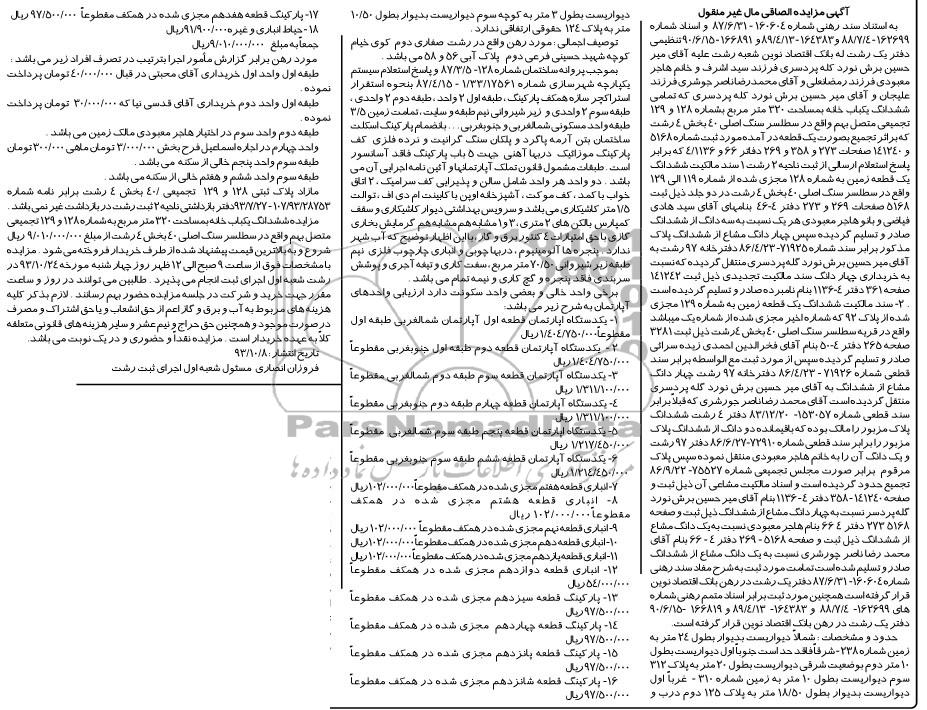 آگهی مزایده الصاقی مال غیر منقول
به استناد سند رهنی شماره ۱۶۰۶۰۴- ۸۷/۶/۳۱ و اسناد شماره
۱۶۲۶۹۹-۸۸/۷/۴ و ۱۶۴۳۸۳-۸۹/۴/۱۳ و ۱۶۶۸۹۱-۹۰/۶/۱۵ تنظیمی
دفتر یک رشت له بانک اقتصاد نوین شعبه رشت علیه آقای میر
حسین برش نورد کله پردسری فرزند سید اشرف و خانم هاجر
معبودی فرزند رمضانعلی و آقای محمد رضا ناصر جورشری فرزند
علیجان و آقای میر حسین برش نورد کله پردسری که تمامی
ششدانگ یکباب خانه بمساحت ۳۲۰ متر مربع بشماره ۱۲۸ و ۱۲۹
تجمیعی متصل بهم واقع در سطلسر سنگ اصلی ۴۰ بخش ۴ رشت
که براثر تجمیع بصورت یک قطعه در آمده مورد ثبت شماره ۵۱۶۸
و ۱۴۱۲۴۰ صفحات ۲۷۳ و ۳۵۸ و ۲۶۹ دفاتر ۶۶ و ۴/۱۱۳۶ که برابر
پاسخ استعلام ارسالی از ثبت ناحیه ۲ رشت ۱ سند مالکیت ششدانگ
یک قطعه زمین به شماره ۱۲۸ مجزی شده از شماره ۱۱۹ الی ۱۲۹
واقع در سطلسر سنگ اصلی ۴۰ بخش ۴ رشت در دو جلد ذیل ثبت
۵۱۶۸ صفحات ۲۶۹ و ۲۷۳ دفتر ۴-۴۶ بنامهای آقای سید هادی
فیاضی و بانو هاجر معبودی هر یک نسبت به سه دانگ از ششدانگ
صادر و تسلیم گردیده سپس چهار دانگ مشاع از ششدانگ پلاک
مذکور برابر سند شماره ۷۱۹۲۵-۸۶/۴/۲۳ دفترخانه ۹۷ رشت به
آقای میر حسین برش نورد گله پردسری منتقل گردیده که نسبت
به خریداری چهار دانگ سند مالکیت تجدیدی ذیل ثبت ۱۴۱۲۴۲
صفحه ۳۶۱ دفتر ۴-۱۱۳۶ بنام نامبرده صادر و تسلیم گردیده است
.۲- سند مالکیت ششدانگ یک قطعه زمین به شماره ۱۲۹ مجزی
شده از پلاک ۹۲ که شماره اخیر مجزی شده از شماره یک میباشد
واقع در قریه سطلسر سنگ اصلی ۴۰ بخش ۴ رشت ذیل ثبت ۳۲۸۱
صفحه ۲۶۵ دفتر ۴-۵۰ بنام آقای فخرالدین احمدی زیده سرائی
صادر و تسلیم گردیده سپس از مورد ثبت مع الواسطه برابر سند
قطعی شماره ۷۱۹۲۶ - ۸۶/۴/۲۳ دفترخانه ۹۷ رشت چهار دانگ
مشاع از ششدانگ به آقای میر حسین برش نورد گله پردسری
منتقل گردیده است آقای محمد رضا ناصر جورشری که قبلاً برابر
سند قطعی شماره ۱۵۳۰۵۷- ۸۳/۱۲/۲۰ دفتر ۴ رشت ششدانگ
پلاک مزبور را مالک بوده که باقیمانده دو دانگ از ششدانگ پلاک
مزبور را برابر سند قطعی شماره ۷۲۹۱۰-۸۶/۶/۲۷ دفتر ۹۷ رشت
و یک دانگ آن را به خانم هاجر معبودی منتقل نموده سپس پلاک
مرقوم برابر صورت مجلس تجمیعی شماره ۷۵۵۲۷- ۸۶/۹/۲۲
تجمیع حدود گردیده است و اسناد مالکیت مشاعی آن ذیل ثبت و
صفحه ۱۴۱۲۴۰-۳۵۸ دفتر ۴-۱۱۳۶ بنام آقای میر حسین برش نورد
گله پردسر نسبت به چهار دانگ مشاع از ششدانگ ذیل ثبت و صفحه
۵۱۶۸ ۲۷۳ دفتر ۴ ۶۶ بنام هاجر معبودی نسبت به یک دانگ مشاع
از ششدانگ ذیل ثبت و صفحه ۵۱۶۸-۲۶۹ دفتر ۴-۶۶ بنام آقای
محمد رضا ناصر چورشری نسبت به یک دانگ مشاع از ششدانگ
صادر و تسلیم شده است تمامت مورد ثبت به شرح مفاد سند رهنی
شماره ۱۶۰۶۰۴-۸۷/۶/۳۱ دفتر یک رشت در رهن بانک اقتصاد نوین
قرار گرفته است همچنین مورد ثبت برابر اسناد متمم رهنی شماره
های ۱۶۲۶۹۹- ۸۸/۷/۴ و ۱۶۴۳۸۳- ۸۹/۴/۱۳ و ۱۶۶۸۱۹-۹۰/۶/۱۵
دفتر یک رشت در رهن بانک اقتصاد نوین قرار گرفته است.
حدود و مشخصات : شمالاً دیواریست بدیوار بطول ۲۴ متر به
زمین شماره ۲۳۸- شرقاً فاقد حد است جنوباً اول دیواریست بطول
۱۰ متر دوم بوضعیت شرقی دیواریست بطول ۲۰ متر به پلاک ۳۱۲
سوم دیواریست بطول ۱۰ متر به زمین شماره ۳۱۰ - غرباً اول
دیواریست بدیوار بطول ۱۸/۵۰ متر به پلاک ۱۲۵ دوم درب و
دیواریست بطول ۳ متر به کوچه سوم دیواریست بدیوار بطول ۱۰/۵۰
متر به پلاک ۱۲۴ حقوقی ارتفاقی ندارد .
توصیف اجمالی : مورد رهن واقع در رشت صفاری دوم کوی خیام
کوچه شهید حسینی فرعی دوم پلاک آبی ۵۶ و ۵۸ می باشد .
بموجب پروانه ساختمان شماره ۱۲۸- ۸۷/۳/۵ و پاسخ استعلام سیستم
یکپارچه شهرسازی شماره ۱/۳۳/۱۷۵۶۱ - ۸۷/۴/۱۵ بنحوه استقرار
استراکچر سازه همکف پارکینگ ، طبقه اول ۲ واحد ، طبقه دوم ۲ واحدی ،
طبقه سوم ۲ واحدی و زیر شیروانی نیم طبقه و سایت ، تمامت زمین ۳/۵
طبقه واحد مسکونی شمالغربی و جنوبغربی ... بانضمام پارکینگ اسکلت
ساختمان بتن آرمه پاگرد و پلکان سنگ گرانیت و نرده فلزی کف
پارکینگ موزائیک دربها آهنی جهت ۵ باب پارکینگ فاقد آسانسور
است . طبقات مشمول قانون تملک آپارتمانها و آئین نامه اجرایی آن می
باشد . دو واحد هر واحد شامل سالن و پذیرایی کف سرامیک ، ۲ اتاق
خواب با کمد ، کف موکت ، آشپزخانه اوپن با کابینت ام دی اف ، توالت
۱/۵ متر کاشیکاری می باشد و سرویس بهداشتی دیوار کاشیکاری و سقف
کمپارس بالکن های ۲ متری ، ۳ و ۱ مشابه هم مشابه هم گرمایش بخاری
گازی با حق امتیازات ۴ کنتور برق و گاز با این اظهار توضیح که آب شهر
ندارد . پنجره ها آلومینیوم ، دربها چوبی و انباری چارچوب فلزی نیم
طبقه زیر شیروانی ۷۰/۵۰ متر مربع ، سفت کاری و تیغه آجری و پوشش
سربندی فاقد پنجره و گچ کاری و نیمه تمام می باشد .
برخی واحد خالی و بعضی واحد سکونت دارد ارزیابی واحدهای
آپارتمان به شرح زیر می باشد :
۱- یکدستگاه آپارتمان قطعه اول آپارتمان شمالغربی طبقه اول
مقطوعاً ۱/۴۰۴/۷۵۰/۰۰۰ ریال
۲ - یکدستگاه آپارتمان قطعه دوم طبقه اول جنوبغربی مقطوعاً
۱/۴۰۴/۷۵۰/۰۰۰ ریال
۳- یکدستگاه آپارتمان قطعه سوم طبقه دوم شمالغربی مقطوعاً
۱/۳۱۱/۱۰۰/۰۰۰ ریال
۴- یکدستگاه آپارتمان قطعه چهارم طبقه دوم جنوبغربی مقطوعاً
۱/۳۱۱/۱۰۰/۰۰۰ ریال
۵- یکدستگاه آپارتمان قطعه پنجم طبقه سوم شمالغربی مقطوعاً
۱/۲۱۷/۴۵۰/۰۰۰ ریال
۶- یکدستگاه آپارتمان قطعه ششم طبقه سوم جنوبغربی مقطوعاً
۱/۲۱۴/۴۵۰/۰۰۰ ریال
۷- انباری قطعه هفتم مجزی شده در همکف مقطوعاً ۱۰۲/۰۰۰/۰۰۰ ریال
۸- انباری قطعه هشتم مجزی شده در همکف
مقطوعاً ۱۰۲/۰۰۰/۰۰۰ ریال
۹- انباری قطعه نهم مجزی شده در همکف مقطوعاً ۱۰۲/۰۰۰/۰۰۰ ریال
۱۰- انباری قطعه دهم مجزی شده در همکف مقطوعاً ۱۰۲/۰۰۰/۰۰۰ ریال
۱۱- انباری قطعه یازدهم مجزی شده در همکف مقطوعاً ۱۰۲/۰۰۰/۰۰۰ ریال
۱۲- انباری قطعه دوازدهم مجزی شده در همکف مقطوعاً
۵۴/۰۰۰/۰۰۰ ریال
۱۳- پارکینگ قطعه سیزدهم مجزی شده در همکف مقطوعاً
۹۷/۵۰۰/۰۰۰ ریال
۱۴- پارکینگ قطعه چهاردهم مجزی شده در همکف مقطوعاً
۹۷/۵۰۰/۰۰۰ ریال
۱۵- پارکینگ قطعه پانزدهم مجزی شده در همکف مقطوعاً
۹۷/۵۰۰/۰۰۰ ریال
۱۶- پارکینگ قطعه شانزدهم مجزی شده در همکف مقطوعاً
۹۷/۵۰۰/۰۰۰ ریال
۱۷- پارکینگ قطعه هفدهم مجزی شده در همکف مقطوعاً ۹۷/۵۰۰/۰۰۰ ریال
۱۸- حیاط انباری و غیره ۹۱/۹۰۰/۰۰۰ ریال
جمعاً به مبلغ ۹/۰۱۰/۰۰۰/۰۰۰ ریال
مورد رهن برابر گزارش مأمور اجرا بترتیب در تصرف افراد زیر می باشد :
طبقه اول واحد اول خریداری آقای محبتی در قبال ۴۰/۰۰۰/۰۰۰ تومان پرداخت
نموده .
طبقه اول واحد دوم خریداری آقای قدسی نیا که ۳۰/۰۰۰/۰۰۰ تومان پرداخت
نموده .
طبقه دوم واحد سوم در اختیار هاجر معبودی مالک زمین می باشد .
واحد چهارم در اجاره اسماعیل فرح بخش ۳/۰۰۰/۰۰۰ تومان ماهی ۳۰۰/۰۰۰ تومان
طبقه سوم واحد پنجم خالی از سکنه می باشد .
طبقه سوم واحد ششم و هفتم خالی از سکنه می باشد .
مازاد پلاک ثبتی ۱۲۸ و ۱۲۹ تجمیعی /۴۰ بخش ۴ رشت برابر نامه شماره
۱۰۷/۹۳/۲۸۷۵۳-۹۳/۷/۲۷ دفتر بازداشتی ناحیه ۲ ثبت رشت در بازداشت غیر نمی باشد .
مزایده ششدانگ یکباب خانه بمساحت ۳۲۰ متر مربع به شماره ۱۲۸ و ۱۲۹ تجمیعی
متصل بهم واقع در سطلسر سنگ اصلی ۴۰ بخش ۴ رشت از مبلغ ۹/۰۱۰/۰۰۰/۰۰۰ ریال
شروع و به بالاترین قیمت پیشنهاد شده از طرف خریدار فروخته می شود . مزایده
با مشخصات فوق از ساعت ۹ صبح الی ۱۲ ظهر روز چهار شنبه مورخه ۹۳/۱۰/۲۴ در
رشت شعبه اول اجرای ثبت انجام می پذیرد . طالبین می توانند در روز و ساعت
مقرر جهت خرید و شرکت در جلسه مزایده حضور بهم رسانند . لازم بذکر کلیه
هزینه های مربوط به آب و برق و گاز اعم از حق انشعاب و یا حق اشتراک و مصرف
در صورت موجود و همچنین حق حراج و نیم عشر و سایر هزینه های قانونی متعلقه
کلا به عهده خریدار است . مزایده نقداً و حضوری و در یک نوبت می باشد.
تاریخ انتشار : ۹۳/۱۰/۸
فروزان انصاری مسئول شعبه اول اجرای ثبت رشت
ParsNamadData